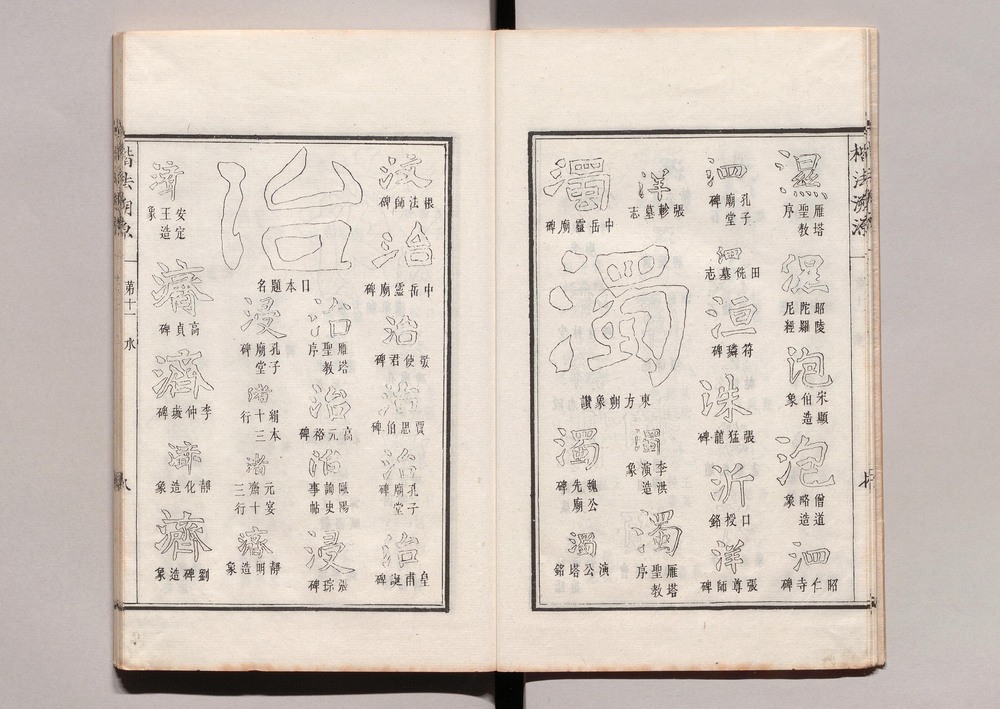 楷法溯源
濕
雁塔聖教序
濕
昭陵陀羅尼經
泡
宋顯伯造象
泡
僧道略造象
泗
昭仁寺碑
泗
孔子廟堂碑
泗
田侁墓志
洹
符璘碑
洙
張猛龍碑
沂
口授銘
洋
張尊師碑
洋
張軫墓志
濁
中岳靈廟碑
濁
東方朔象讚
濁
李洪演造象
濁
雁塔聖教序
濁
魏公先廟碑
濁
演公塔銘
根法師碑
治
中岳靈廟碑
治
敬使君碑
治
賈思伯碑
治
孔子廟堂碑
治
皇甫誕碑
治
日本題名
治
雁塔聖教序
治
高元裕碑
治
歐陽詢史事帖
浸
張琮碑
浸
孔子廟堂碑
濟
絹本十三行
濟
元晏齋十三行
濟
靜明造象
濟
安定王造象
濟
高貞碑
濟
李仲璇碑
濟
靜化造象
濟
劉碑造象
楷法溯源 第十一 水 八